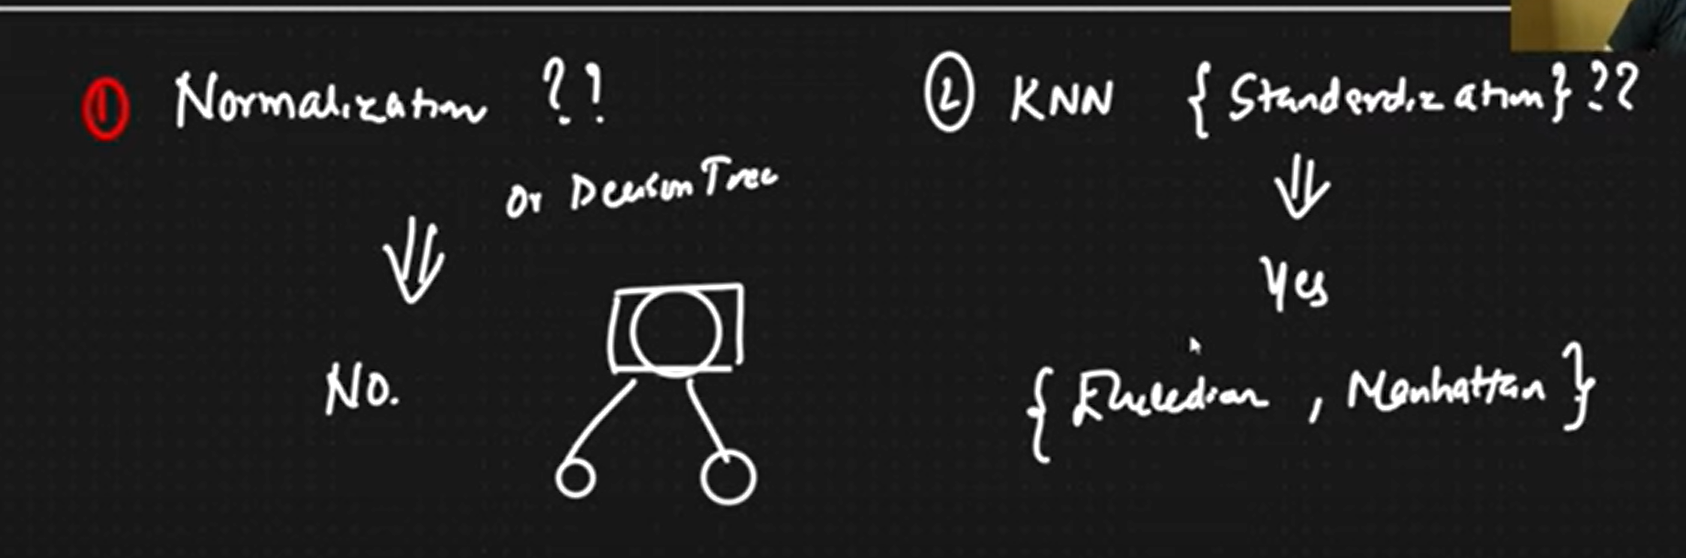 ① Normalization ??
or Decision Tree
No.
② KNN {Standardization}??
Yes
{Eucledian, Manhattan}